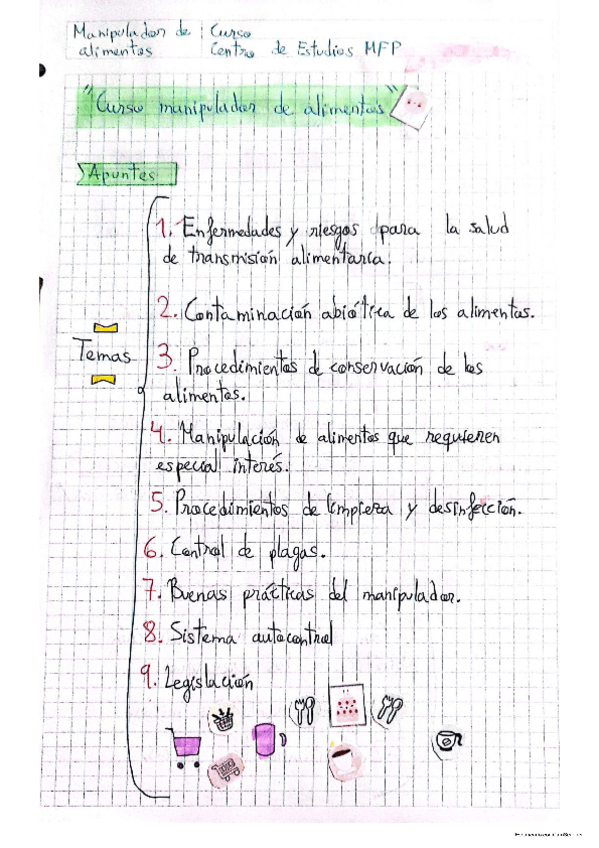 Manipulador de alimentos
Curso
Centro de Estudios MFP
"Curso manipulador de alimentos"
Apuntes
Temas
1. Enfermedades y riesgos para la salud
de transmisión alimentaria.
2. Contaminación abiótica de los alimentos.
3. Procedimientos de conservación de los
alimentos.
4. Manipulación de alimentos que requieren
especial interés.
5. Procedimientos de limpieza y desinfección.
6. Control de plagas.
7. Buenas prácticas del manipulador.
8. Sistema autocontrol
9. Legislación